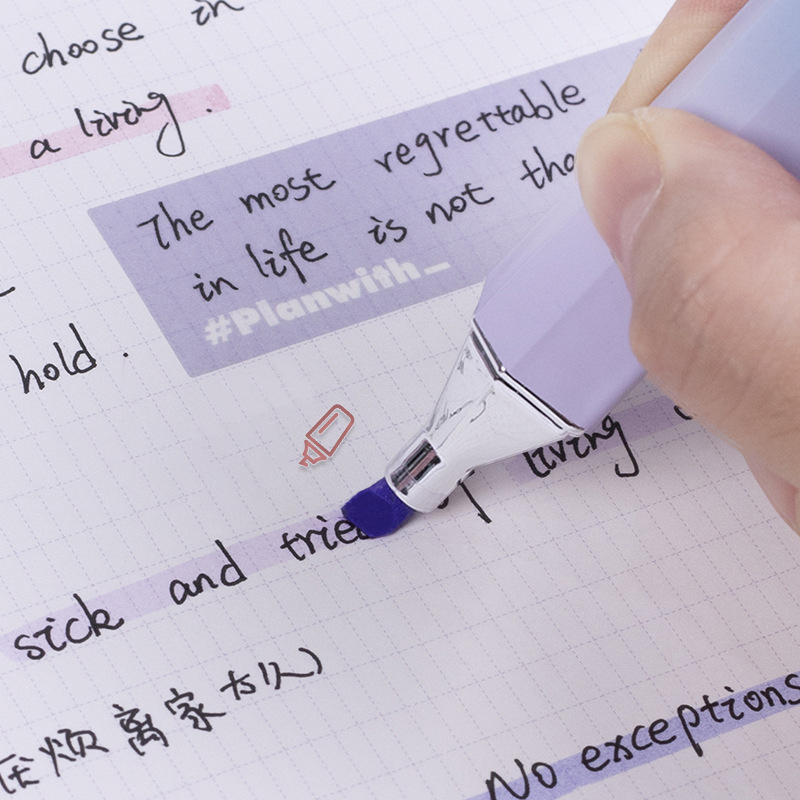 choose in
a living.
The most regrettable
in life is not tha
#Planwith_
hold.
sick and tried of living
烦离家
No exceptions